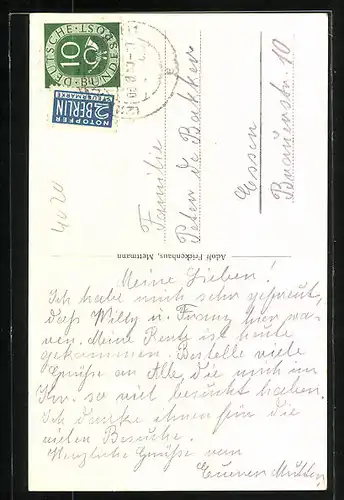 DEUTSCHE BUNDESPOST
10
NOTOPFER
2 BERLIN
STEUERMARKE
Familie
Peter de Bakker
Essen
Brauerstr. 10
4020
Adolf Frickenhaus, Mettmann
Meine Lieben!
Ich habe mich sehr gefreut,
dass Willy u. Franz hier wa-
ren. Meine Rente ist heute
gekommen. Bestelle viele
Grüsse an Alle, die mich im
Kr. so viel besucht haben.
Ich danke ihnen für die
vielen Besuche.
Herzliche Grüsse von
Eueren Mutter